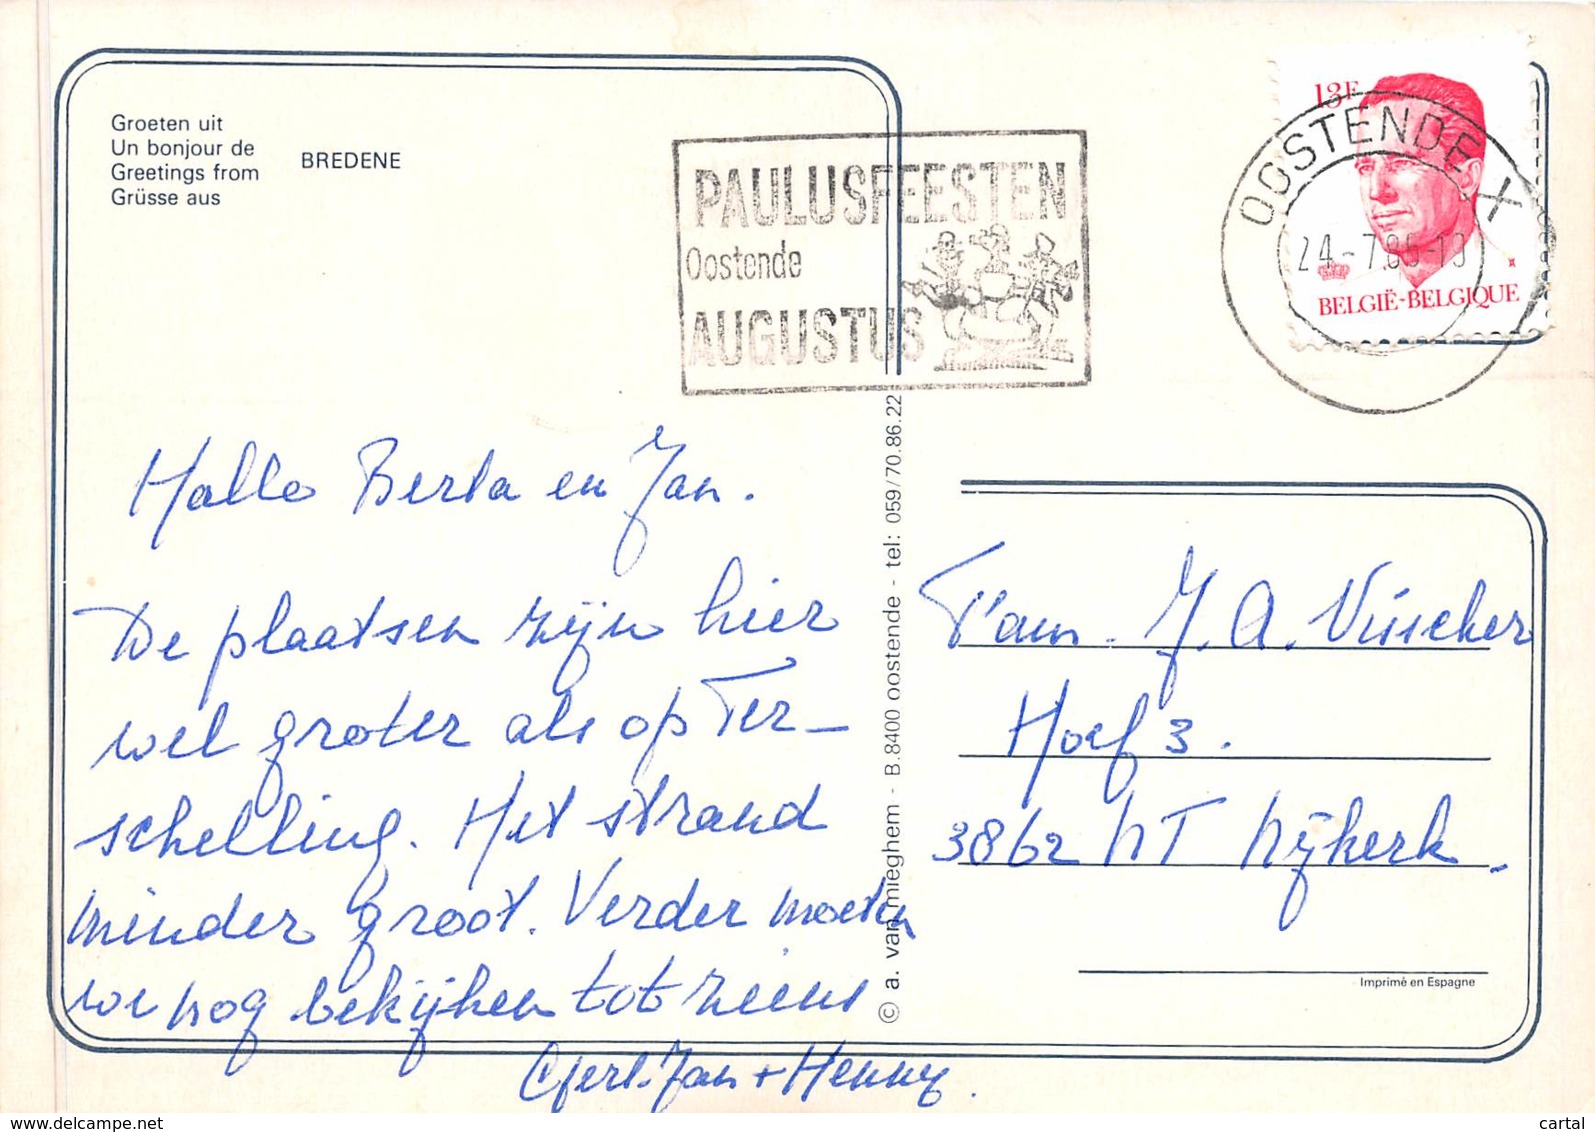 Groeten uit
Un bonjour de
Greetings from
Grüsse aus
BREDENE
PAULUSFEESTEN
Oostende
AUGUSTUS
13F
OOSTENDE X
24-7
BELGIË-BELGIQUE
Hallo Berta en Jan.
De plaatsen zijn hier
wel groter als op Ter-
schelling. Het strand
minder groot. Verder moeten
we nog bekijken tot ziens
Gert-Jan + Henny.
© a. van mieghem - B.8400 oostende - tel: 059/70.86.22
Fam. J. A. Visscher
Hoef 3.
3862 NT Nijkerk.
Imprimé en Espagne
www.delcampe.net
cartal